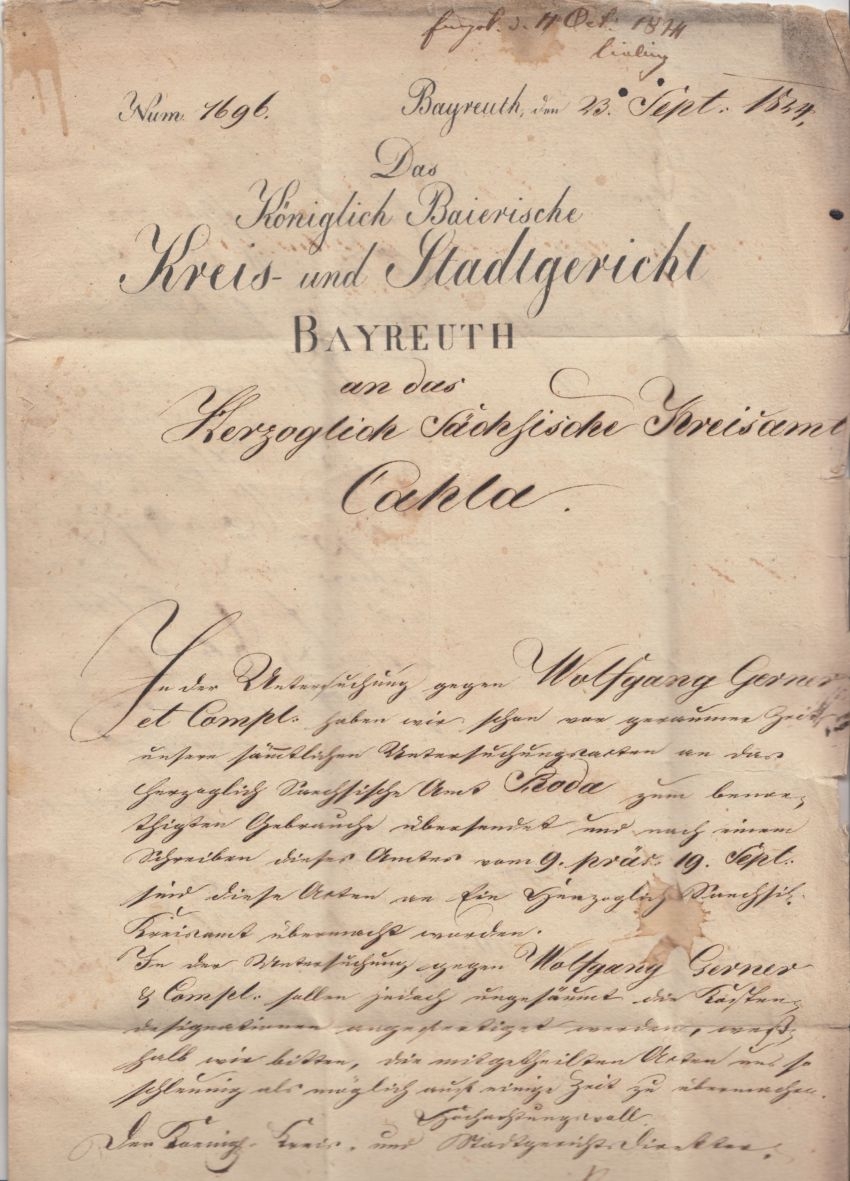 d. 4 Oct. 1824
Num. 1696. Bayreuth, den 23. Sept. 1824,
Das
Königlich Baierische
Kreis- und Stadtgericht
BAYREUTH
an das
Herzoglich Sächsische Kreisamt
Cahla.
In der Untersuchung gegen Wolfgang Gerner
et Compl. haben wir schon vor geraumer Zeit
unsere sämtlichen Untersuchungsacten an das
Herzoglich Saechsische Amt Roda zum benoe-
thigten Gebrauche übersendet und nach einem
Schreiben dieses Amtes vom 9. präs. 19. Sept.
sind diese Acten an Ein Herzoglich Saechsis.
Kreisamt übermacht worden.
In der Untersuchung gegen Wolfgang Gerner
& Compl. sollen jedoch ungesäumt die Kosten-
designationen angefertiget werden, weß-
halb wir bitten, die mitgetheilten Acten uns so
schleunig als möglich auf einige Zeit zu übermachen.
Hochachtungsvoll
Der Koenigl. Kreis- und Stadtgerichtsdirektor.